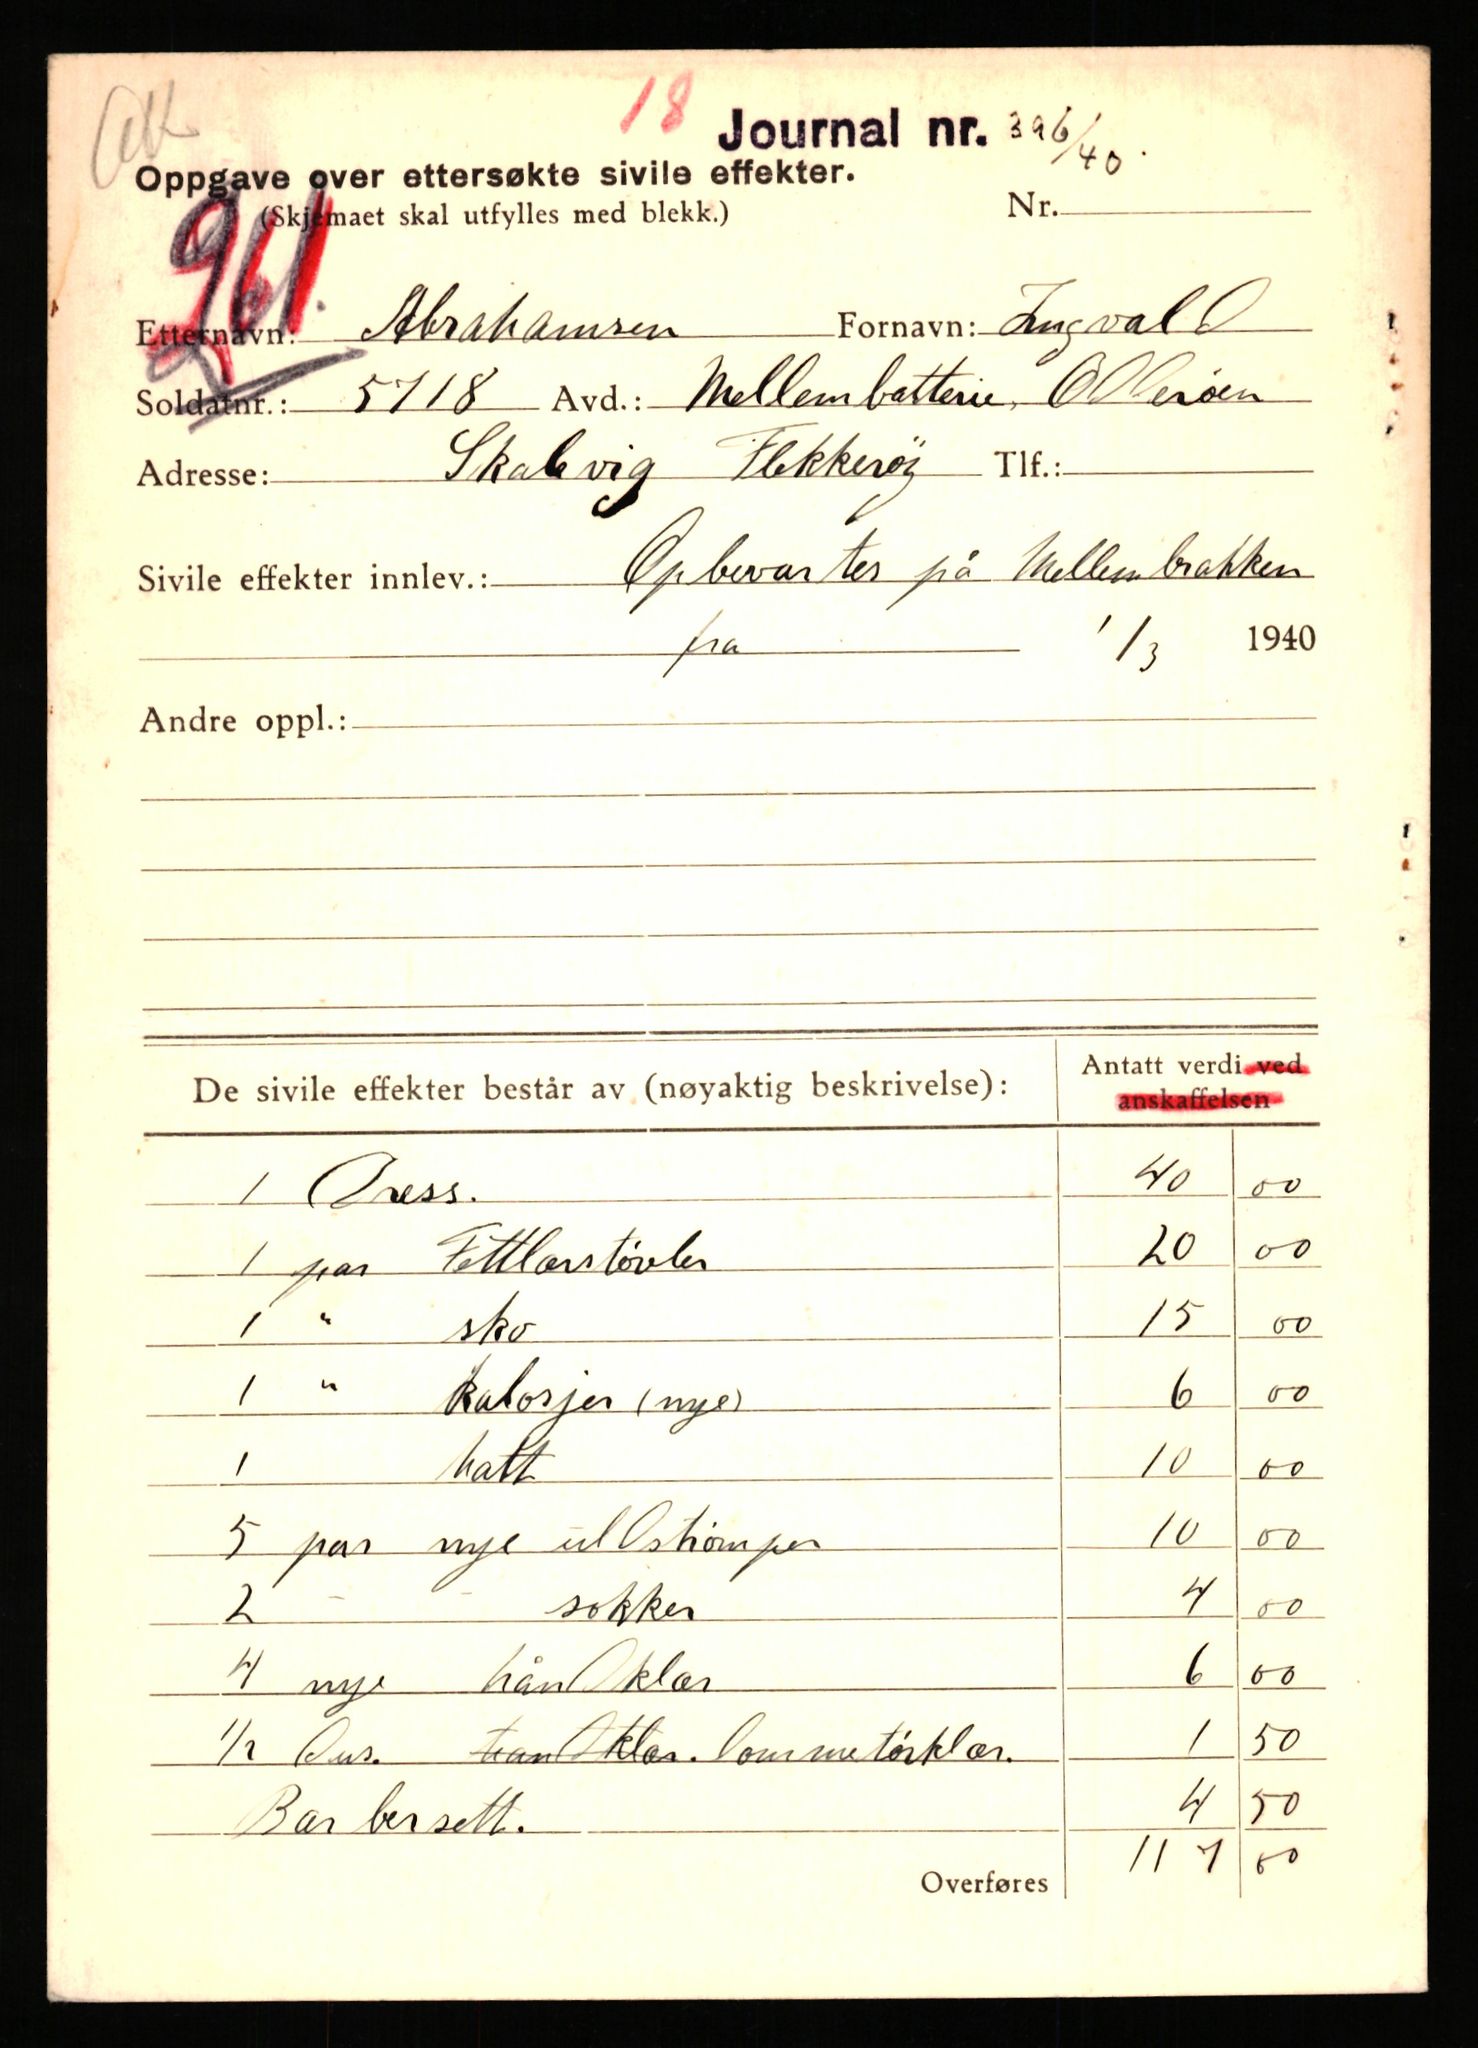 18
Journal nr. 396/40.
Oppgave over ettersøkte sivile effekter.
(Skjemaet skal utfylles med blekk.) Nr.
961.
Etternavn: Abrahamsen Fornavn: Ingvald
Soldatnr.: 5718 Avd.: Mellembatterie, Odderöen
Adresse: Skalevig Flekkeröy Tlf.:
Sivile effekter innlev.: Opbevartes på Mellembrakken
fra 1/3 1940
Andre oppl.:
De sivile effekter består av (nøyaktig beskrivelse): Antatt verdi ved
anskaffelsen
1 Dress. 40 00
1 par Fettlærstövler 20 00
1 " sko 15 00
1 " kalosjer (nye) 6 00
1 hatt 10 00
5 par nye ullströmper 10 00
2 - - sokker 4 00
4 nye håndklær 6 00
1/2 Dus. handklær. Lommetörklær. 1 50
Barbersett. 4 50
Overføres 117 00